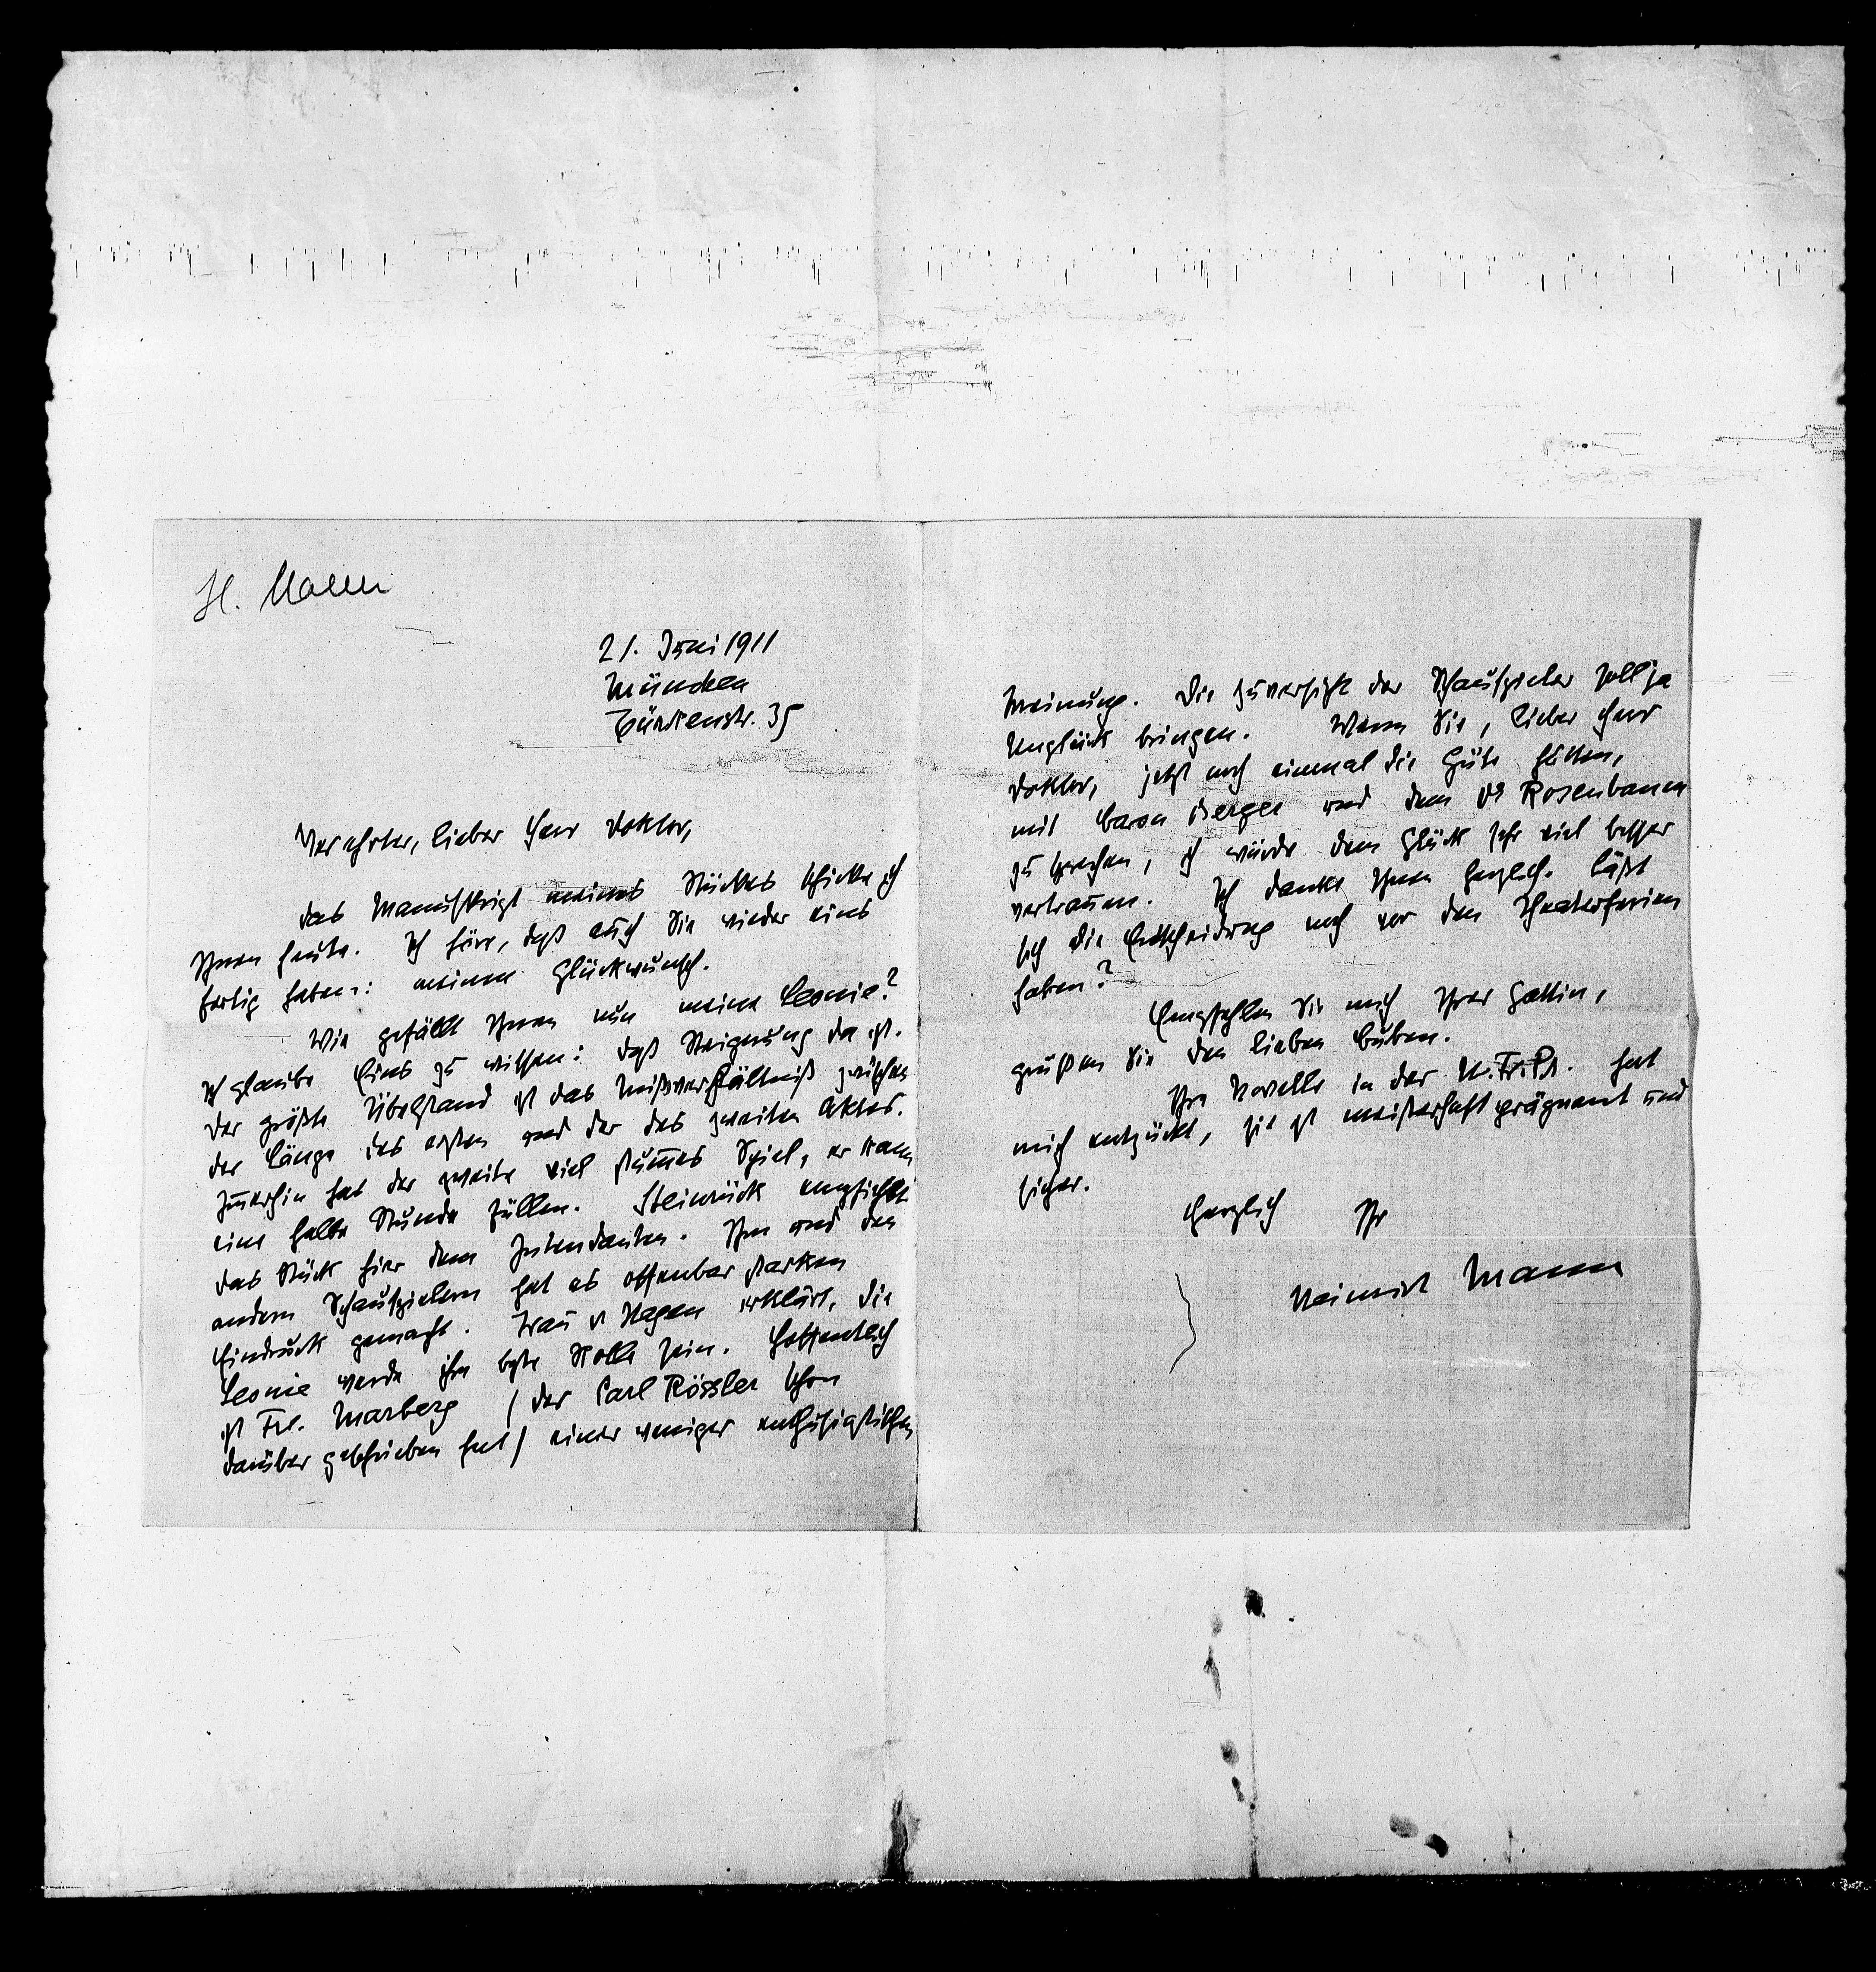 H. Mann
21. Juni 1911
München
Türkenstr. 35
Verehrter, lieber Herr Doktor,
das Manuskript meines Stückes schicke ich
Ihnen heute. Ich höre, daß auch Sie wieder eins
fertig haben: meinen Glückwunsch.
Wie gefällt Ihnen nun meine Leonie?
Ich glaube Eins zu wissen: daß Steigerung da ist.
Der größte Übelstand ist das Mißverhältniß zwischen
der Länge des ersten und der des zweiten Aktes.
Immerhin hat der zweite viel stummes Spiel, er kann
eine halbe Stunde füllen. Steinrück empfiehlt
das Stück hier dem Intendanten. Ihm und den
andern Schauspielern hat es offenbar starken
Eindruck gemacht. Frau v Hagen erklärt, die
Leonie werde ihre beste Rolle sein. Hoffentlich
ist Frl. Marberg (der Carl Rössler schon
darüber geschrieben hat) einer weniger enthusiastischen
Meinung. Die Zuversicht der Schauspieler soll ja
Unglück bringen. Wenn Sie, lieber Herr
Doktor, jetzt noch einmal die Güte hätten,
mit Baron Berger und dem Dr Rosenbaum
zu sprechen, ich würde dem Glück sehr viel besser
vertrauen. Ich danke Ihnen herzlich. Läßt
sich die Entscheidung noch vor den Theaterferien
haben?
Empfehlen Sie mich Ihrer Gattin,
grüßen Sie den lieben Buben.
Ihre Novelle in der N. Fr. Pr. hat
mich entzückt, sie ist meisterhaft prägnant und
sicher.
Herzlich Ihr
Heinrich Mann